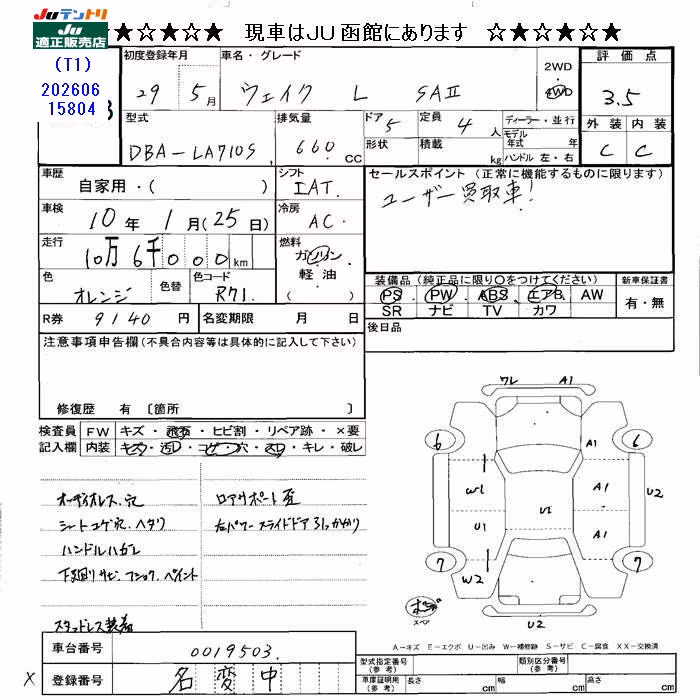 JUテントリ
JU
適正販売店
★☆★☆★ 現車はJU函館にあります ☆★☆★☆★
(T1)
202606
15804
初度登録年月
29 5月
車名・グレード
ウェイク L SAⅡ
2WD
・
4WD
評価点
3.5
外装 内装
C C
型式
DBA-LA710S
排気量
660 CC
ドア 5
形状
定員 4 人
積載 kg
ディーラー・並行
モデル
年式 年
ハンドル 左・右
車歴
自家用・( )
シフト
IAT.
セールスポイント(正常に機能するものに限ります)
ユーザー買取車!
車検
10年 1月(25日)
冷房
AC.
走行
10万6千000km
燃料
ガソリン
軽油
( )
色
オレンジ
色替
色コード
R71.
装備品(純正品に限り○をつけてください)
PS PW ABS エアB AW
SR ナビ TV カワ
新車保証書
有・無
R券 9140円
名変期限 月 日
後日品
注意事項申告欄(不具合内容等は具体的に記入して下さい)
修復歴 有 〔箇所 〕
検査員
記入欄
FW キズ・飛石・ヒビ割・リペア跡・×要
内装 キズ・汚れ・コゲ・穴・スレ・キレ・破レ
オーディオレス.穴
シートコゲ穴.ヘタリ
ハンドルハガレ
下廻りサビ.フショク.ペイント
スタッドレス装着
ロアサポート歪
左パワースライドドア引っかかり
ワレ A1
6 6
A1
W1 A1
U2
U1 U1 A1
7 7
W2
U2
スペア
A-キズ E-エクボ U-凹み W-補修跡 S-サビ C-腐食 XX-交換済
車台番号
0019503.
X
登録番号
名変中
型式指定番号
(参考)
類別区分番号
(参考)
車庫証明用
(参考)
長さ cm
幅 cm
高さ cm